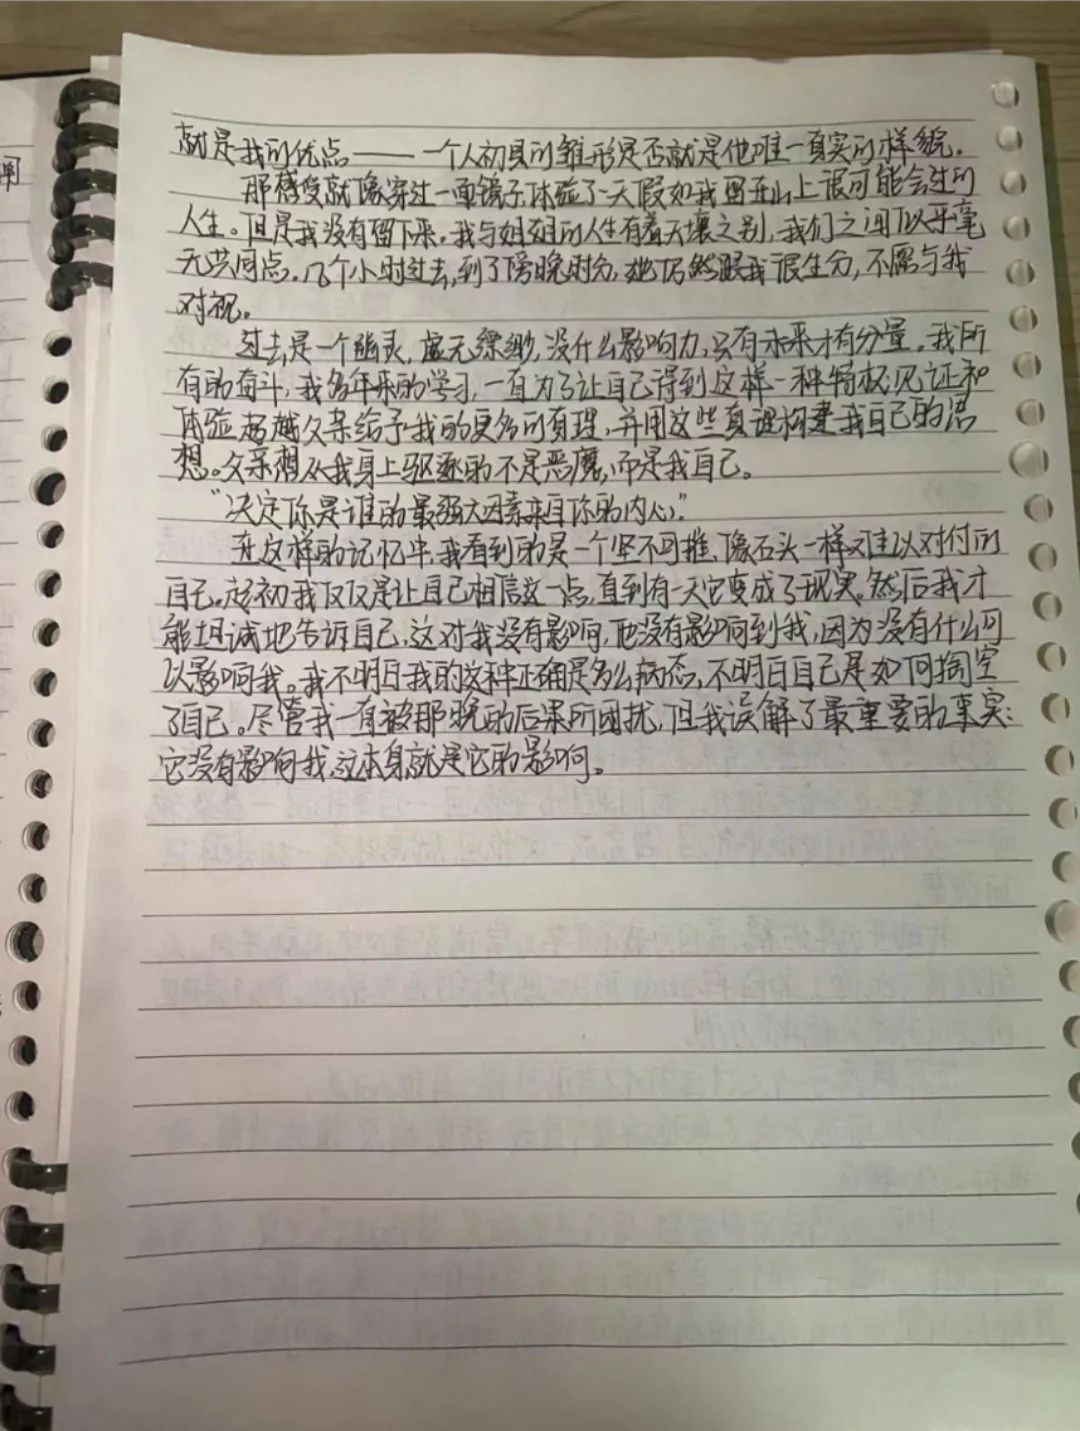 就是我的优点——一个人初具的雏形是否就是他唯一真实的样貌。
那感受就像穿过一面镜子,体验了一天假如我留在山上很可能会过的
人生。但是我没有留下来。我与姐姐的人生有着天壤之别,我们之间似乎毫
无共同点。几个小时过去,到了傍晚时分,她仍然跟我很生分,不愿与我
对视。
过去是一个幽灵,虚无缥缈,没什么影响力,只有未来才有分量。我所
有的奋斗,我多年来的学习,一直为了让自己得到这样一种特权:见证和
体验超越父亲给予我的更多的真理,并用这些真理构建我自己的思
想。父亲想从我身上驱逐的不是恶魔,而是我自己。
“决定你是谁的最强大因素来自你的内心。”
在这样的记忆中,我看到的是一个坚不可摧、像石头一样难以对付的
自己。起初我仅仅是让自己相信这一点,直到有一天它变成了现实。然后我才
能坦诚地告诉自己,这对我没有影响,他没有影响到我,因为没有什么可
以影响我。我不明白我的这种正确是多么病态,不明白自己是如何掏空
了自己。尽管我一直被那晚的后果所困扰,但我误解了最重要的事实:
它没有影响我,这本身就是它的影响。